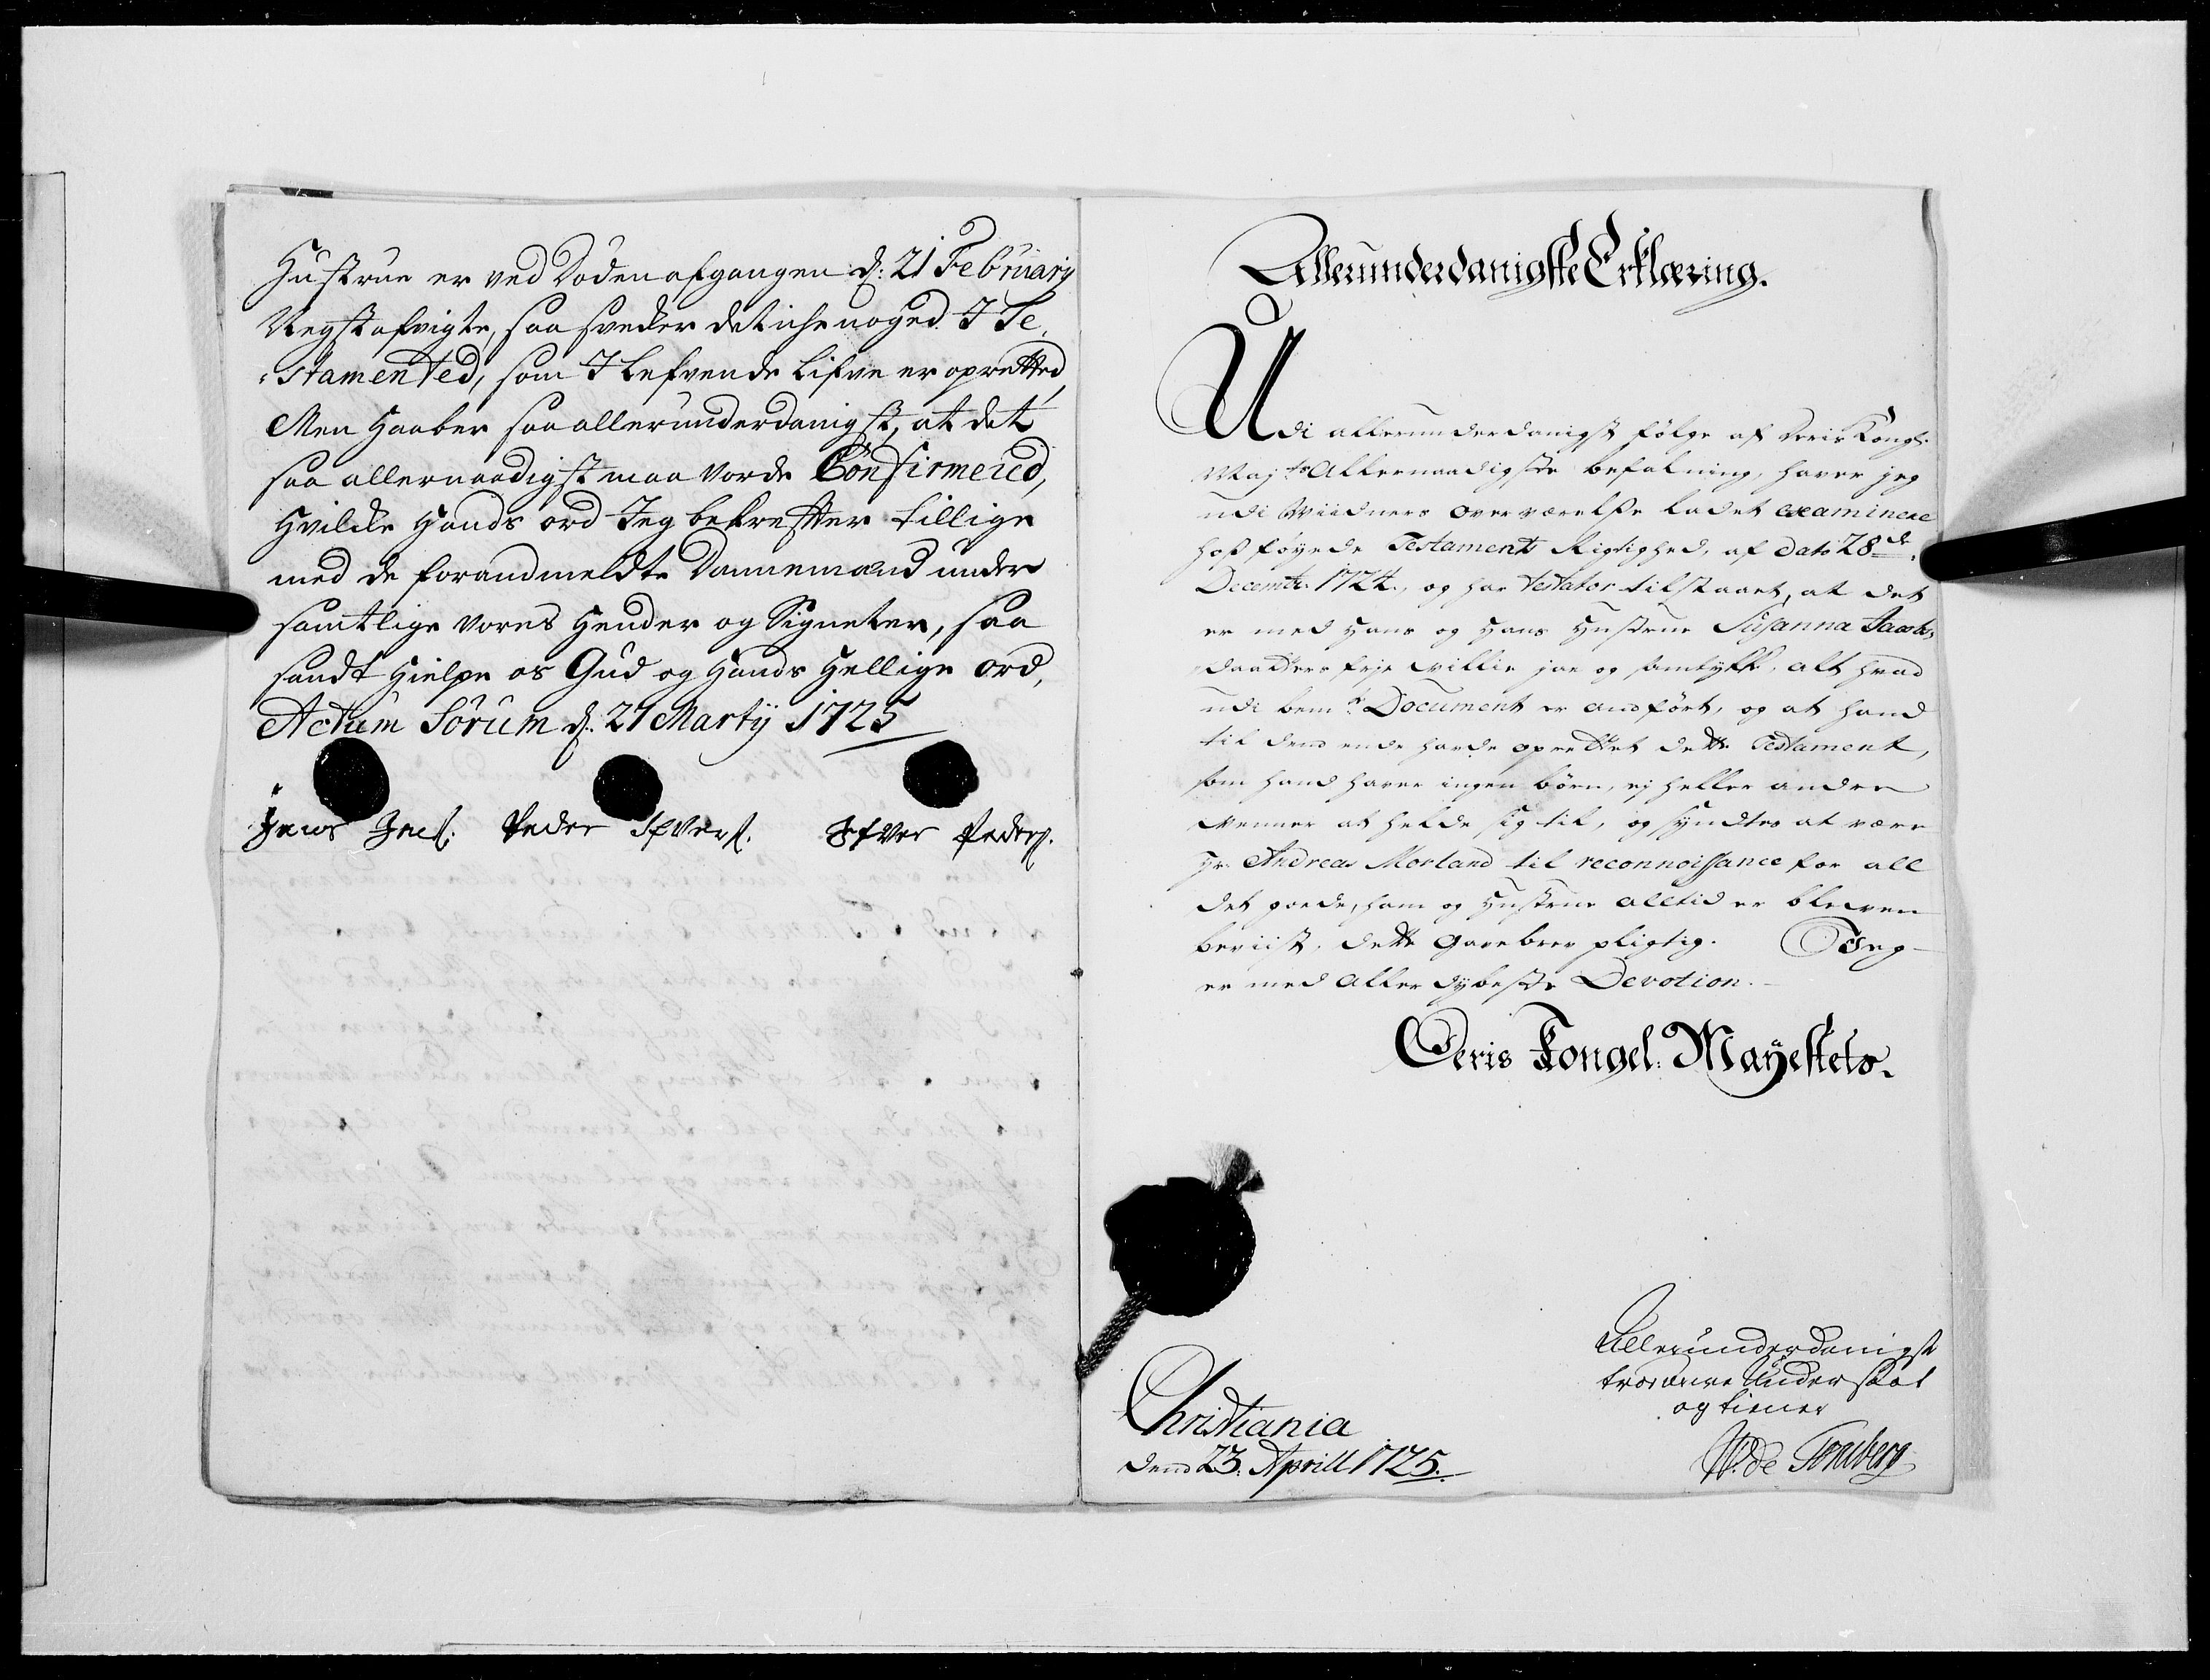 Hustrue er ved Döden afgangen d: 21 February
Negst afvigte, saa svecker det iche noged I Te,
stamented, som I Lefvende Lifve er opretted,
Men Haaber saa allerunderdanigst, at det
saa allernaadigst maa vorde Confirmered,
Hvilcke Hands ord Jeg bekreffter tillige
med de forandmeldte Dannemænd under
samtlige vores Hender og Signeter, saa
sandt Hielpe os Gud og Hands Hellige ord,
Actum Sörum d: 21 Martij 1725
Jens Jens: Peder Ifvers. Ifver Peders.
Allerunderdanigste Erklæring.
Udi allerunderdanigst fölge af Deris Kongl:
Maj:ts Allernaadigste befalning, haver jeg
udi Wiidners overværelse ladet examinere
hosföyede Testaments Rigtighed, af dato 28de
Decembr. 1724, og har testator tilstaaet, at det
er med Hans og Hans Hustrue Susanna Jacobs,
daatters frje villie jae og samtyke, alt hvad
udi bem:te Document er andfört, og at hand
til dend ende hafde oprettet dette Testament,
som hand haver ingen börn, ej heller andre
venner at helde sig til, og syndtes at være
Hr. Andreas Morland til reconnoissance for all
det goede, ham og Hustrue alltid er bleven
beviist, dette gavebrev pligtig. Jeg
er med aller dybeste Devotion.
Deris Kongel: Mayestets.
Allerunderdanigst
troe Under saat
og tiener
W: de Tonsberg
Christiania
dend 23: Aprill 1725.